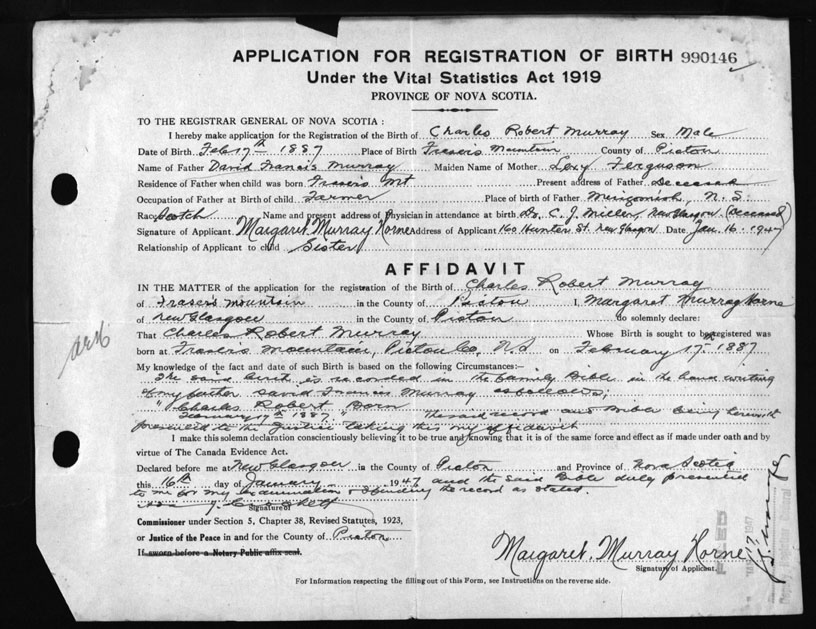 APPLICATION FOR REGISTRATION OF BIRTH 990146
Under the Vital Statistics Act 1919
PROVINCE OF NOVA SCOTIA.
TO THE REGISTRAR GENERAL OF NOVA SCOTIA :
I hereby make application for the Registration of the Birth of Charles Robert Murray Sex Male
Date of Birth Feb 17th 1887 Place of Birth Frasers Mountain County of Pictou
Name of Father David Francis Murray Maiden Name of Mother Lexy Ferguson
Residence of Father when child was born Frasers Mt Present address of Father Deceased
Occupation of Father at Birth of child Farmer Place of birth of Father Merigomish, N.S.
Race Scotch Name and present address of Physician in attendance at birth Dr. C. J. Miller, New Glasgow (deceased)
Signature of Applicant Margaret Murray Horne Address of Applicant 160 Hunter St. New Glasgow Date Jan. 16. 1947
Relationship of Applicant to child Sister
AFFIDAVIT
IN THE MATTER of the application for the registration of the Birth of Charles Robert Murray
of Frasers Mountain in the County of Pictou I, Margaret Murray Horne
of New Glasgow in the County of Pictou do solemnly declare:
That Charles Robert Murray Whose Birth is sought to be registered was
born at Frasers Mountain, Pictou Co, N.S. on February 17th 1887
My knowledge of the fact and date of such Birth is based on the following Circumstances:—
The said birth is recorded in the family Bible in the hand writing
of my father David Francis Murray as follows;
"Charles Robert Born
February 17th 1887" The said record and Bible being herewith
presented to the Justice taking this my affidavit
I make this solemn declaration conscientiously believing it to be true and knowing that it is of the same force and effect as if made under oath and by
virtue of The Canada Evidence Act.
Declared before me at New Glasgow in the County of Pictou and Province of Nova Scotia
this 16th day of January 1947 and the said Bible duly presented
to me for my examination & finding the record as stated.
Signature of
Commissioner under Section 5, Chapter 38, Revised Statutes, 1923,
or Justice of the Peace in and for the County of Pictou
If sworn before a Notary Public affix seal.
Margaret. Murray Horne
Signature of Applicant.
For Information respecting the filling out of this Form, see Instructions on the reverse side.
FILED